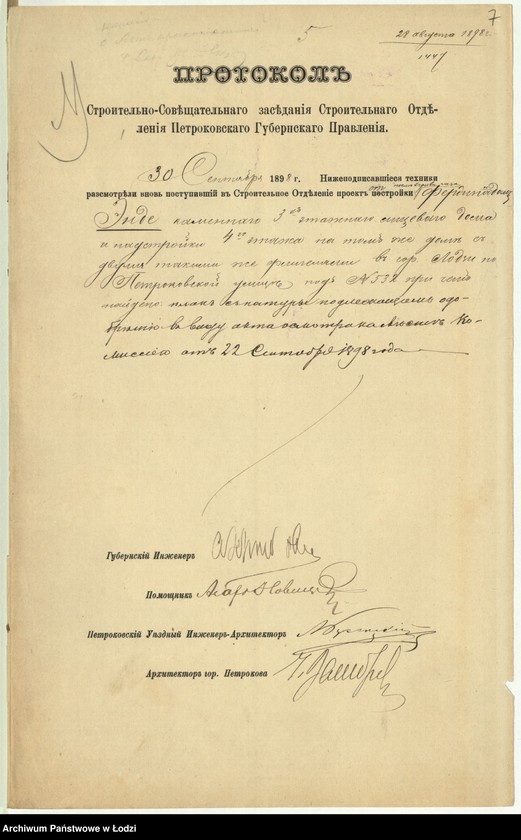 7
5
29 августа 1898 г.
1447
ПРОТОКОЛЪ
Строительно-Совѣщательнаго засѣданія Строительнаго Отдѣ-
ленія Петроковскаго Губернскаго Правленія.
30 Сентября 1898 г. Нижеподписавшіеся техники
разсмотрѣли вновь поступившій въ Строительное Отдѣленіе проектъ постройки Фердинандомъ
Энде каменнаго 3хъ этажнаго лицеваго дома
и надстройки 4го этажа на томъ же домѣ съ
двумя такими же флигелями въ гор. Лодзи по
Петроковской улицѣ подъ № 532 при чемъ
найдено планъ съ натуры подлежащимъ одо-
бренію въ виду акта осмотра на мѣстѣ Ко-
миссіею отъ 22 Сентября 1898 года
Губернскій Инженеръ
Помощникъ
Петроковскій Уѣздный Инженеръ-Архитекторъ
Архитекторъ гор. Петрокова
Archiwum Państwowe w Łodzi